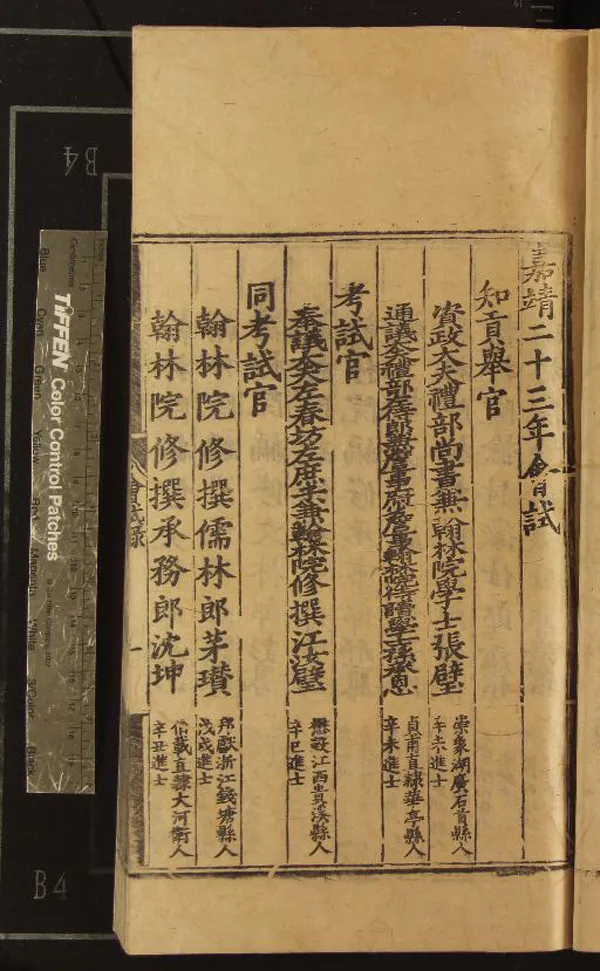 嘉靖二十三年會試
知貢舉官
資政大夫禮部尚書兼翰林院學士張璧
崇象湖廣石首縣人
辛未進士
通議大夫禮部左侍郎兼詹事府詹事翰林院侍讀學士孫承恩
貞甫直隸華亭縣人
辛未進士
考試官
奉議大夫左春坊左庶子兼翰林院修撰江汝璧
懋穀江西貴溪縣人
辛巳進士
同考試官
翰林院修撰儒林郎茅瓚
邦獻浙江錢塘縣人
戊戌進士
翰林院修撰承務郎沈坤
伯載直隸大河衛人
辛丑進士
會試錄
一
B4
B4
TIFFEN Color Control Patches
Centimetres
Blue
Cyan
Green
Yellow
Red
Magenta
White
3/Color
Black